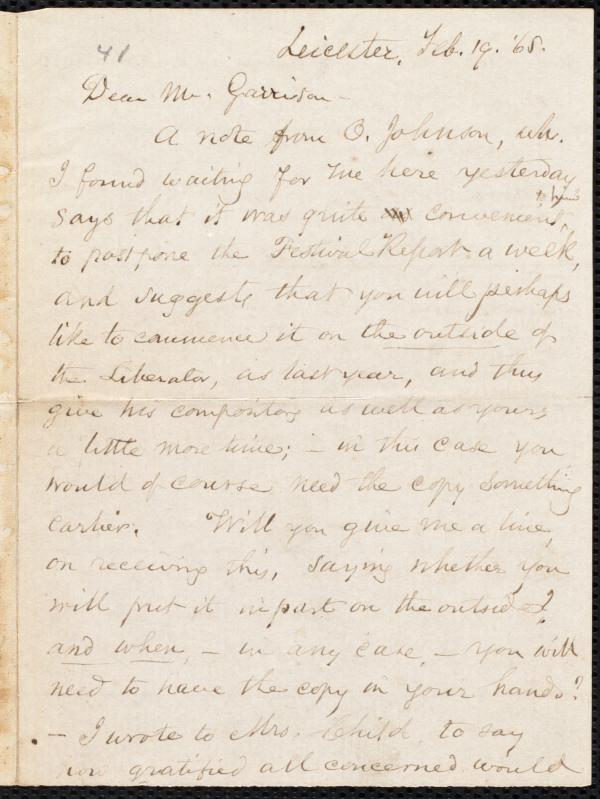 41
Leicester, Feb. 19. '65.
Dear Mr. Garrison -
A note from O. Johnson, wh.
I found waiting for me here yesterday
says that it was quite convenient, to him
to postpone the Festival Report a week,
and suggests that you will perhaps
like to commence it on the outside of
the Liberator, as last year, and thus
give his compositors as well as yours,
a little more time; - in this case you
would of course need the copy something
earlier. Will you give me a line,
on receiving this, saying whether you
will put it in part on the outside?
and when, - in any case, - you will
need to have the copy in your hands?
- I wrote to Mrs. Child, to say
how gratified all concerned would